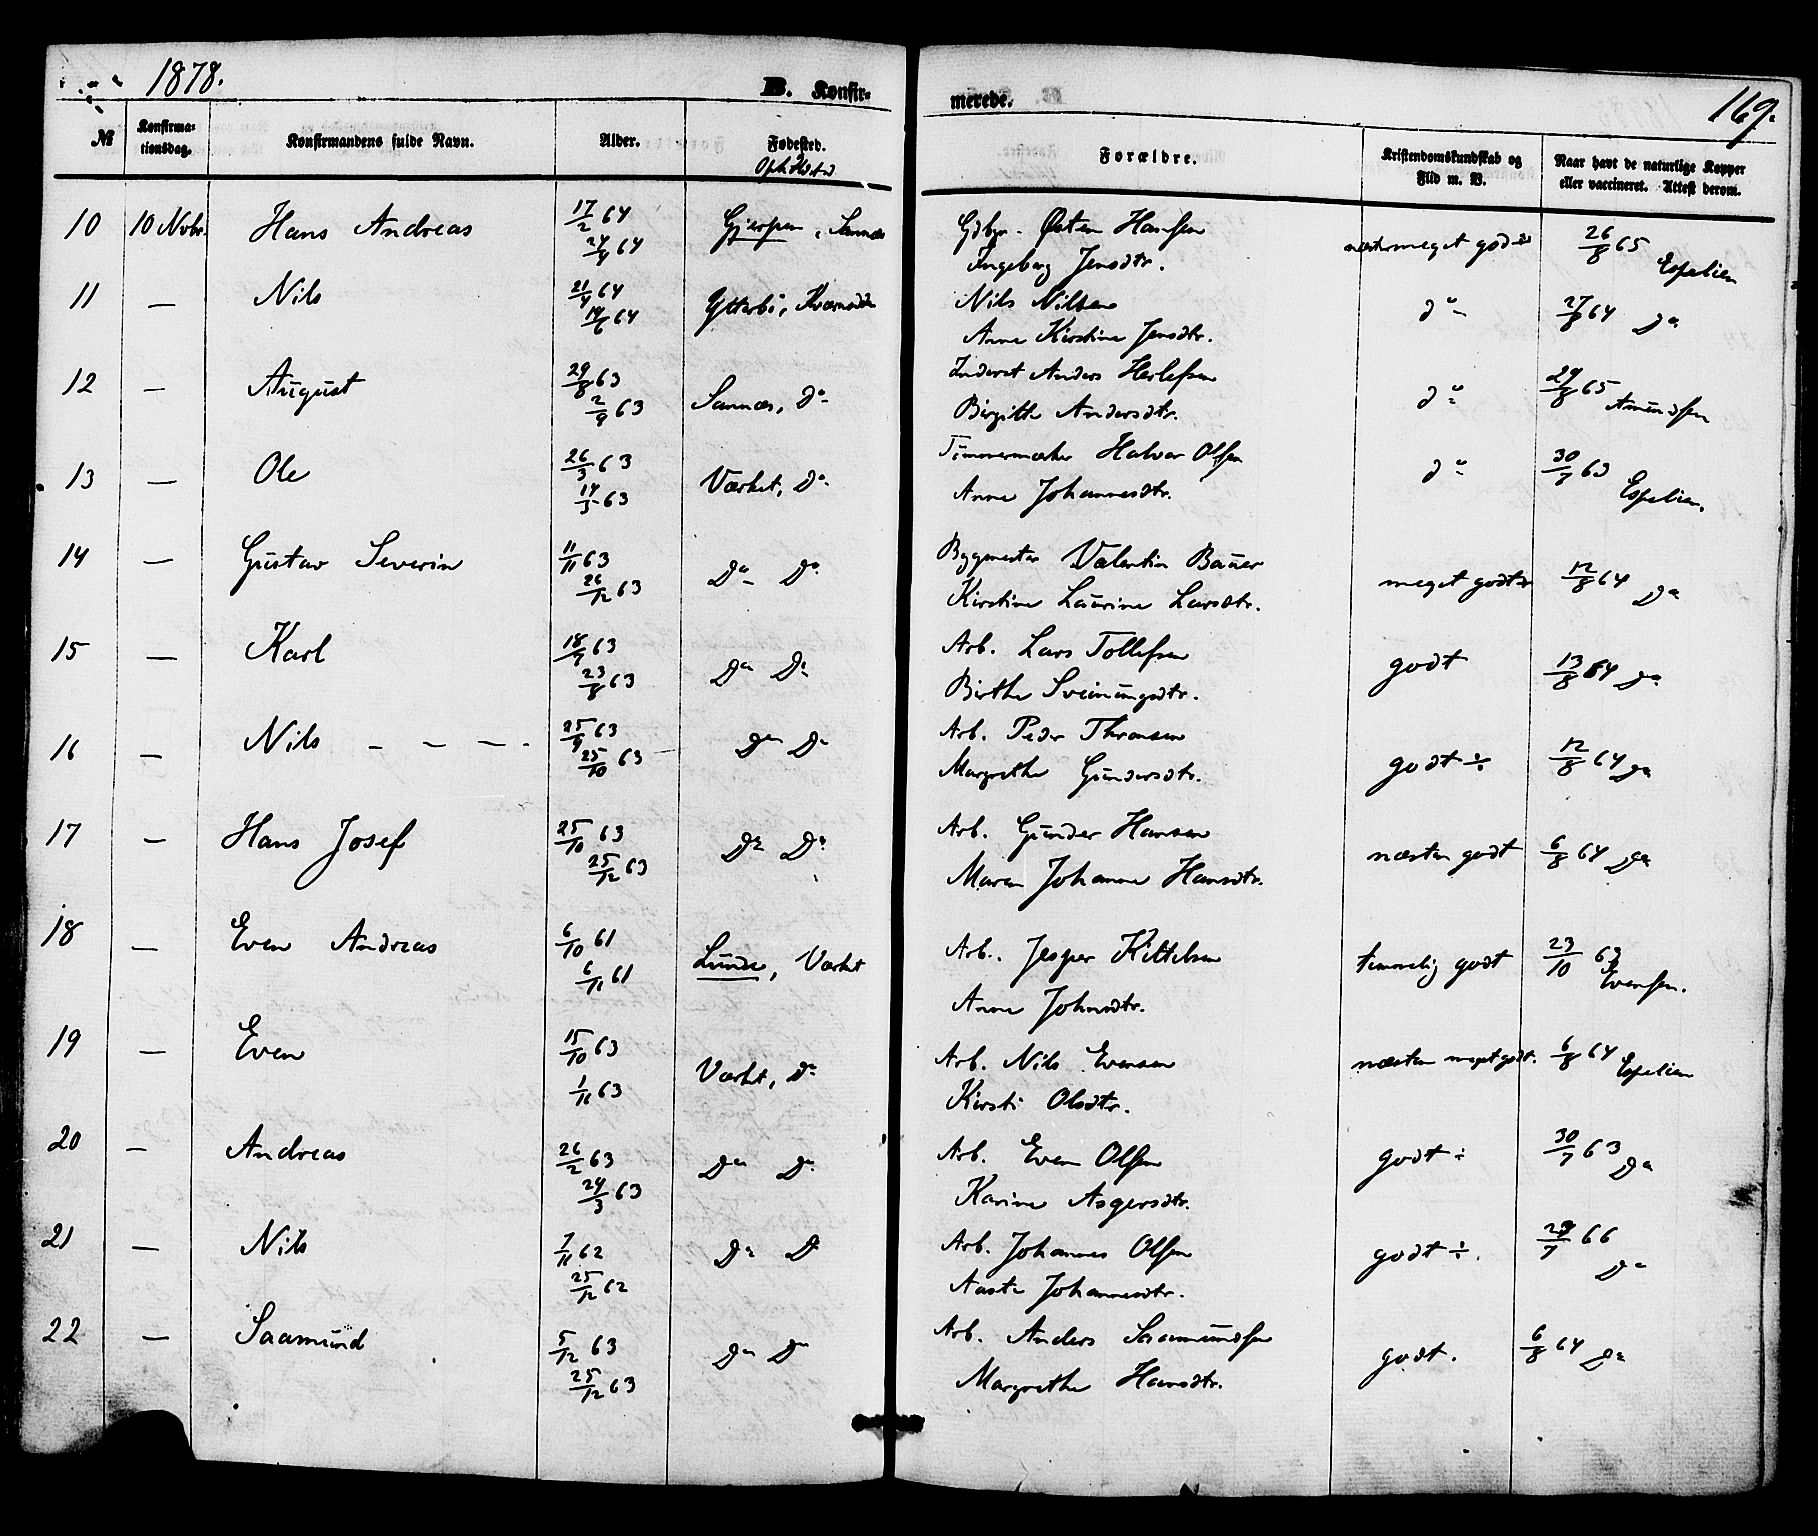 1878.
B. Konfir-
merede.
169.
№
Konfirma-
tionsdag.
Konfirmandens fulde Navn.
Alder.
Fødested.
Forældre.
Kristendomskundskab og
Flid m. V.
Naar havt de naturlige Kopper
eller vaccineret. Attest derom.
10 10 Novbr. Hans Andreas 17/2 64 Gjerpen, Sannæs Gdbgr. Østen Hansen næsten meget godt 26/8 65 Espelien
24/4 64 Ingeborg Jensdtr.
11 — Nils 21/4 64 Ytterbö, Nils Nilsen do 27/8 64 Do
19/6 64 Anne Kirstine Jensdtr.
12 — August 29/8 63 Sannæs, Do Inderst Anders Herlefsen do 29/8 65 Amundsen
2/9 63 Birgithe Andersdtr.
13 — Ole 26/3 63 Værket, Do Halvor Olsen do 30/7 63 Espelien.
14/3 63 Anne Johannesdtr.
14 — Gustav Severin 11/11 63 Do Do Bygmester Valentin Bauer meget godt 12/8 64 Do
26/12 63 Kirstine Laurine Larsdtr.
15 — Karl 18/7 63 Do Do Arb. Lars Tollefsen godt 13/8 64 Do
23/8 63 Birthe Sveinungsdtr.
16 — Nils — — — 25/9 63 Do Do Arb. Peder Thronsen godt ÷ 12/8 64 Do
25/10 63 Margrethe Gundersdtr.
17 — Hans Josef 25/10 63 Do Do Arb. Gunder Hansen næsten godt 6/8 64 Do
25/12 63 Maren Johanne Hansdtr.
18 — Even Andreas 6/10 61 Lunde, Værket Arb. Jesper Kittelsen temmelig godt 23/10 63 Evensen.
6/11 61 Anne Johnsdtr.
19 — Even 15/10 63 Værket, Do Arb. Nils Evensen næsten meget godt. 6/8 64 Espelien
1/11 63 Kirsti Olsdtr.
20 — Andreas 26/2 63 Do Do Arb. Even Olsen godt ÷ 30/7 63 Do
24/3 63 Karine Asgersdtr.
21 — Nils 7/11 62 Do D Arb. Johannes Olsen godt ÷. 29/7 66 Do
25/12 62 Aaste Johannesdtr.
22 — Saamund 5/12 63 Do Do Arb. Anders Saamundsen godt. 6/8 64 Do
25/12 63 Margrethe Hansdtr.